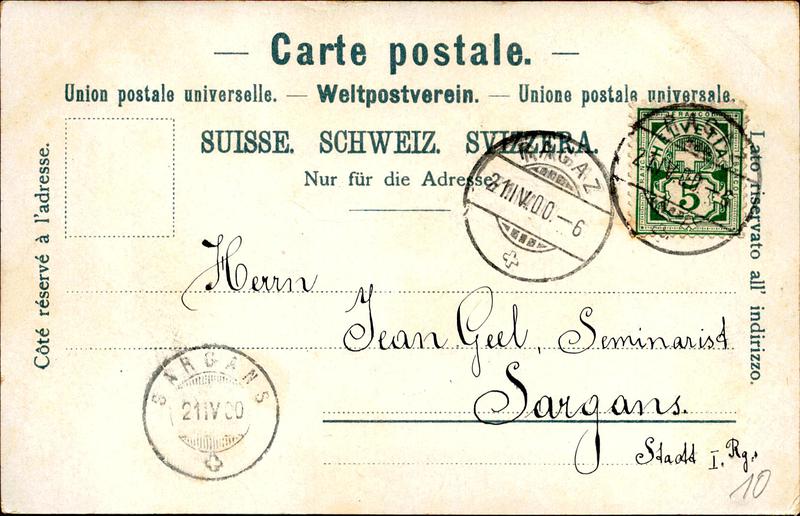 — Carte postale. —
Union postale universelle. — Weltpostverein. — Unione postale universale.
SUISSE. SCHWEIZ. SVIZZERA.
Nur für die Adresse.
Côté réservé à l'adresse.
Lato riservato all' indirizzo.
FRANCO
HELVETIA
5
RAGAZ
21.IV.00.–6
Herrn
Jean Geel, Seminarist
Sargans.
Stadt I. Rg.
SARGANS
21 IV 00
10